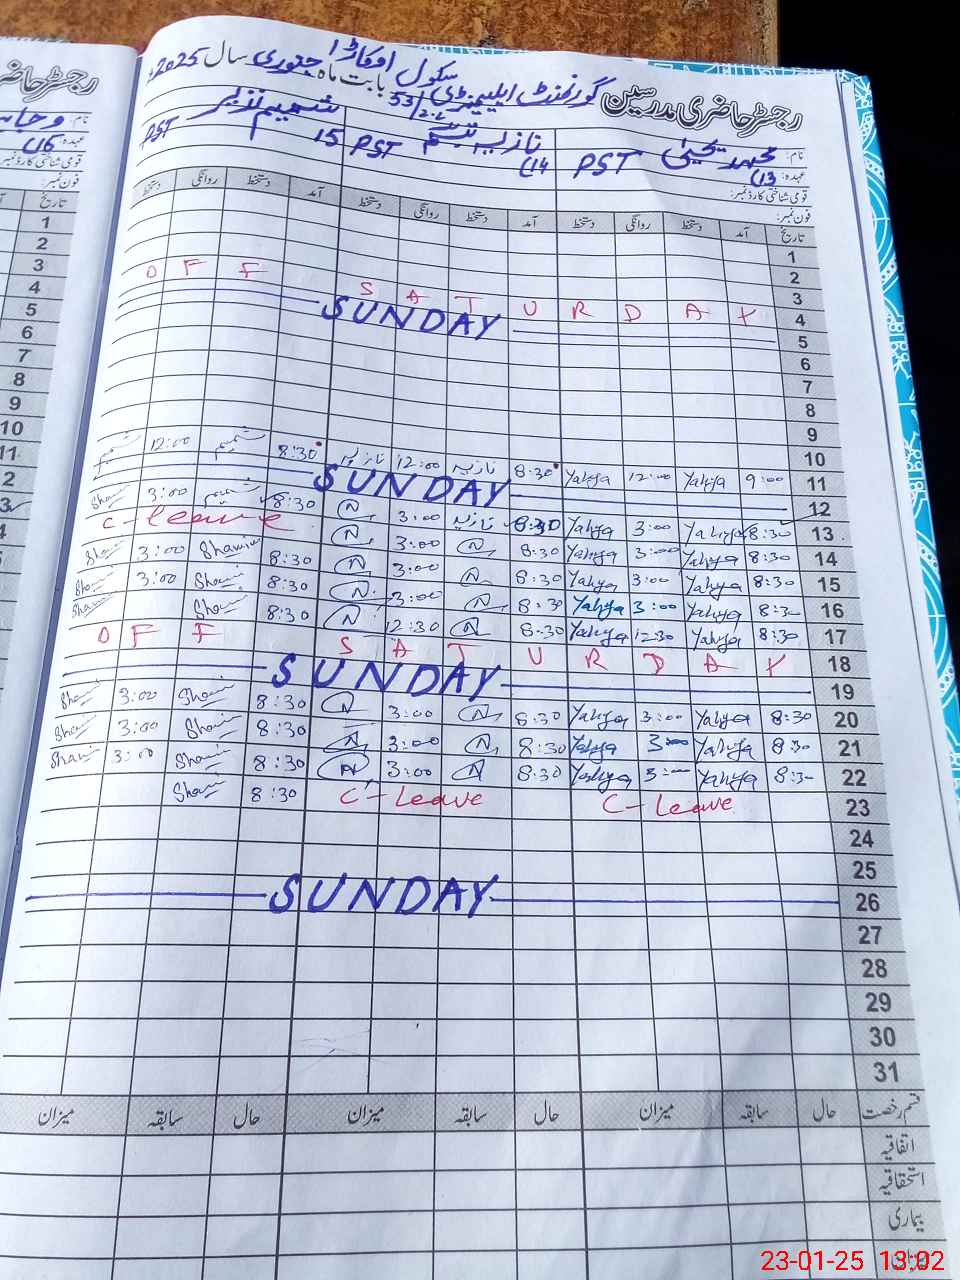 رجسٹر حاضری مدرسین گورنمنٹ ایلیمنٹری سکول 53/2.L اوکاڑا بابت ماہ جنوری سال 2025ء
نام: محمد یحییٰ نازیہ تبسم شمیم نذیر
عہدہ: (13 PST (14 PST 15 PST
قومی شناختی کارڈ نمبر:
فون نمبر:
تاریخ آمد دستخط روانگی دستخط آمد دستخط روانگی دستخط آمد دستخط روانگی دستخط
1
2
3
OFF SATURDAY 4
SUNDAY 5
6
7
8
9
10
شمیم 12:00 شمیم 8:30 نازیہ 12:00 نازیہ 8:30 Yahya 12:00 Yahya 9:00 11
SUNDAY 12
Sham 3:00 شمیم 8:30 N 3:00 نازیہ 8:30 Yahya 3:00 Yahya 8:30 13
C-leave N 3:00 N 8:30 Yahya 3:00 Yahya 8:30 14
Sham 3:00 Shamim 8:30 N 3:00 N 8:30 Yahya 3:00 Yahya 8:30 15
Sham 3:00 Sham 8:30 N 3:00 N 8:30 Yahya 3:00 Yahya 8:30 16
Sham Sham 8:30 N 12:30 N 8:30 Yahya 12:30 Yahya 8:30 17
OFF SATURDAY 18
SUNDAY 19
Sham 3:00 Sham 8:30 N 3:00 N 8:30 Yahya 3:00 Yahya 8:30 20
Sham 3:00 Sham 8:30 N 3:00 N 8:30 Yahya 3:00 Yahya 8:30 21
Sham 3:00 Sham 8:30 N 3:00 N 8:30 Yahya 3:00 Yahya 8:30 22
Sham 8:30 C-Leave C-Leave 23
24
25
SUNDAY 26
27
28
29
30
31
قسم رخصت حال سابقہ میزان حال سابقہ میزان حال سابقہ میزان
اتفاقیہ
استحقاقیہ
بیماری
میزان
23-01-25 13:02